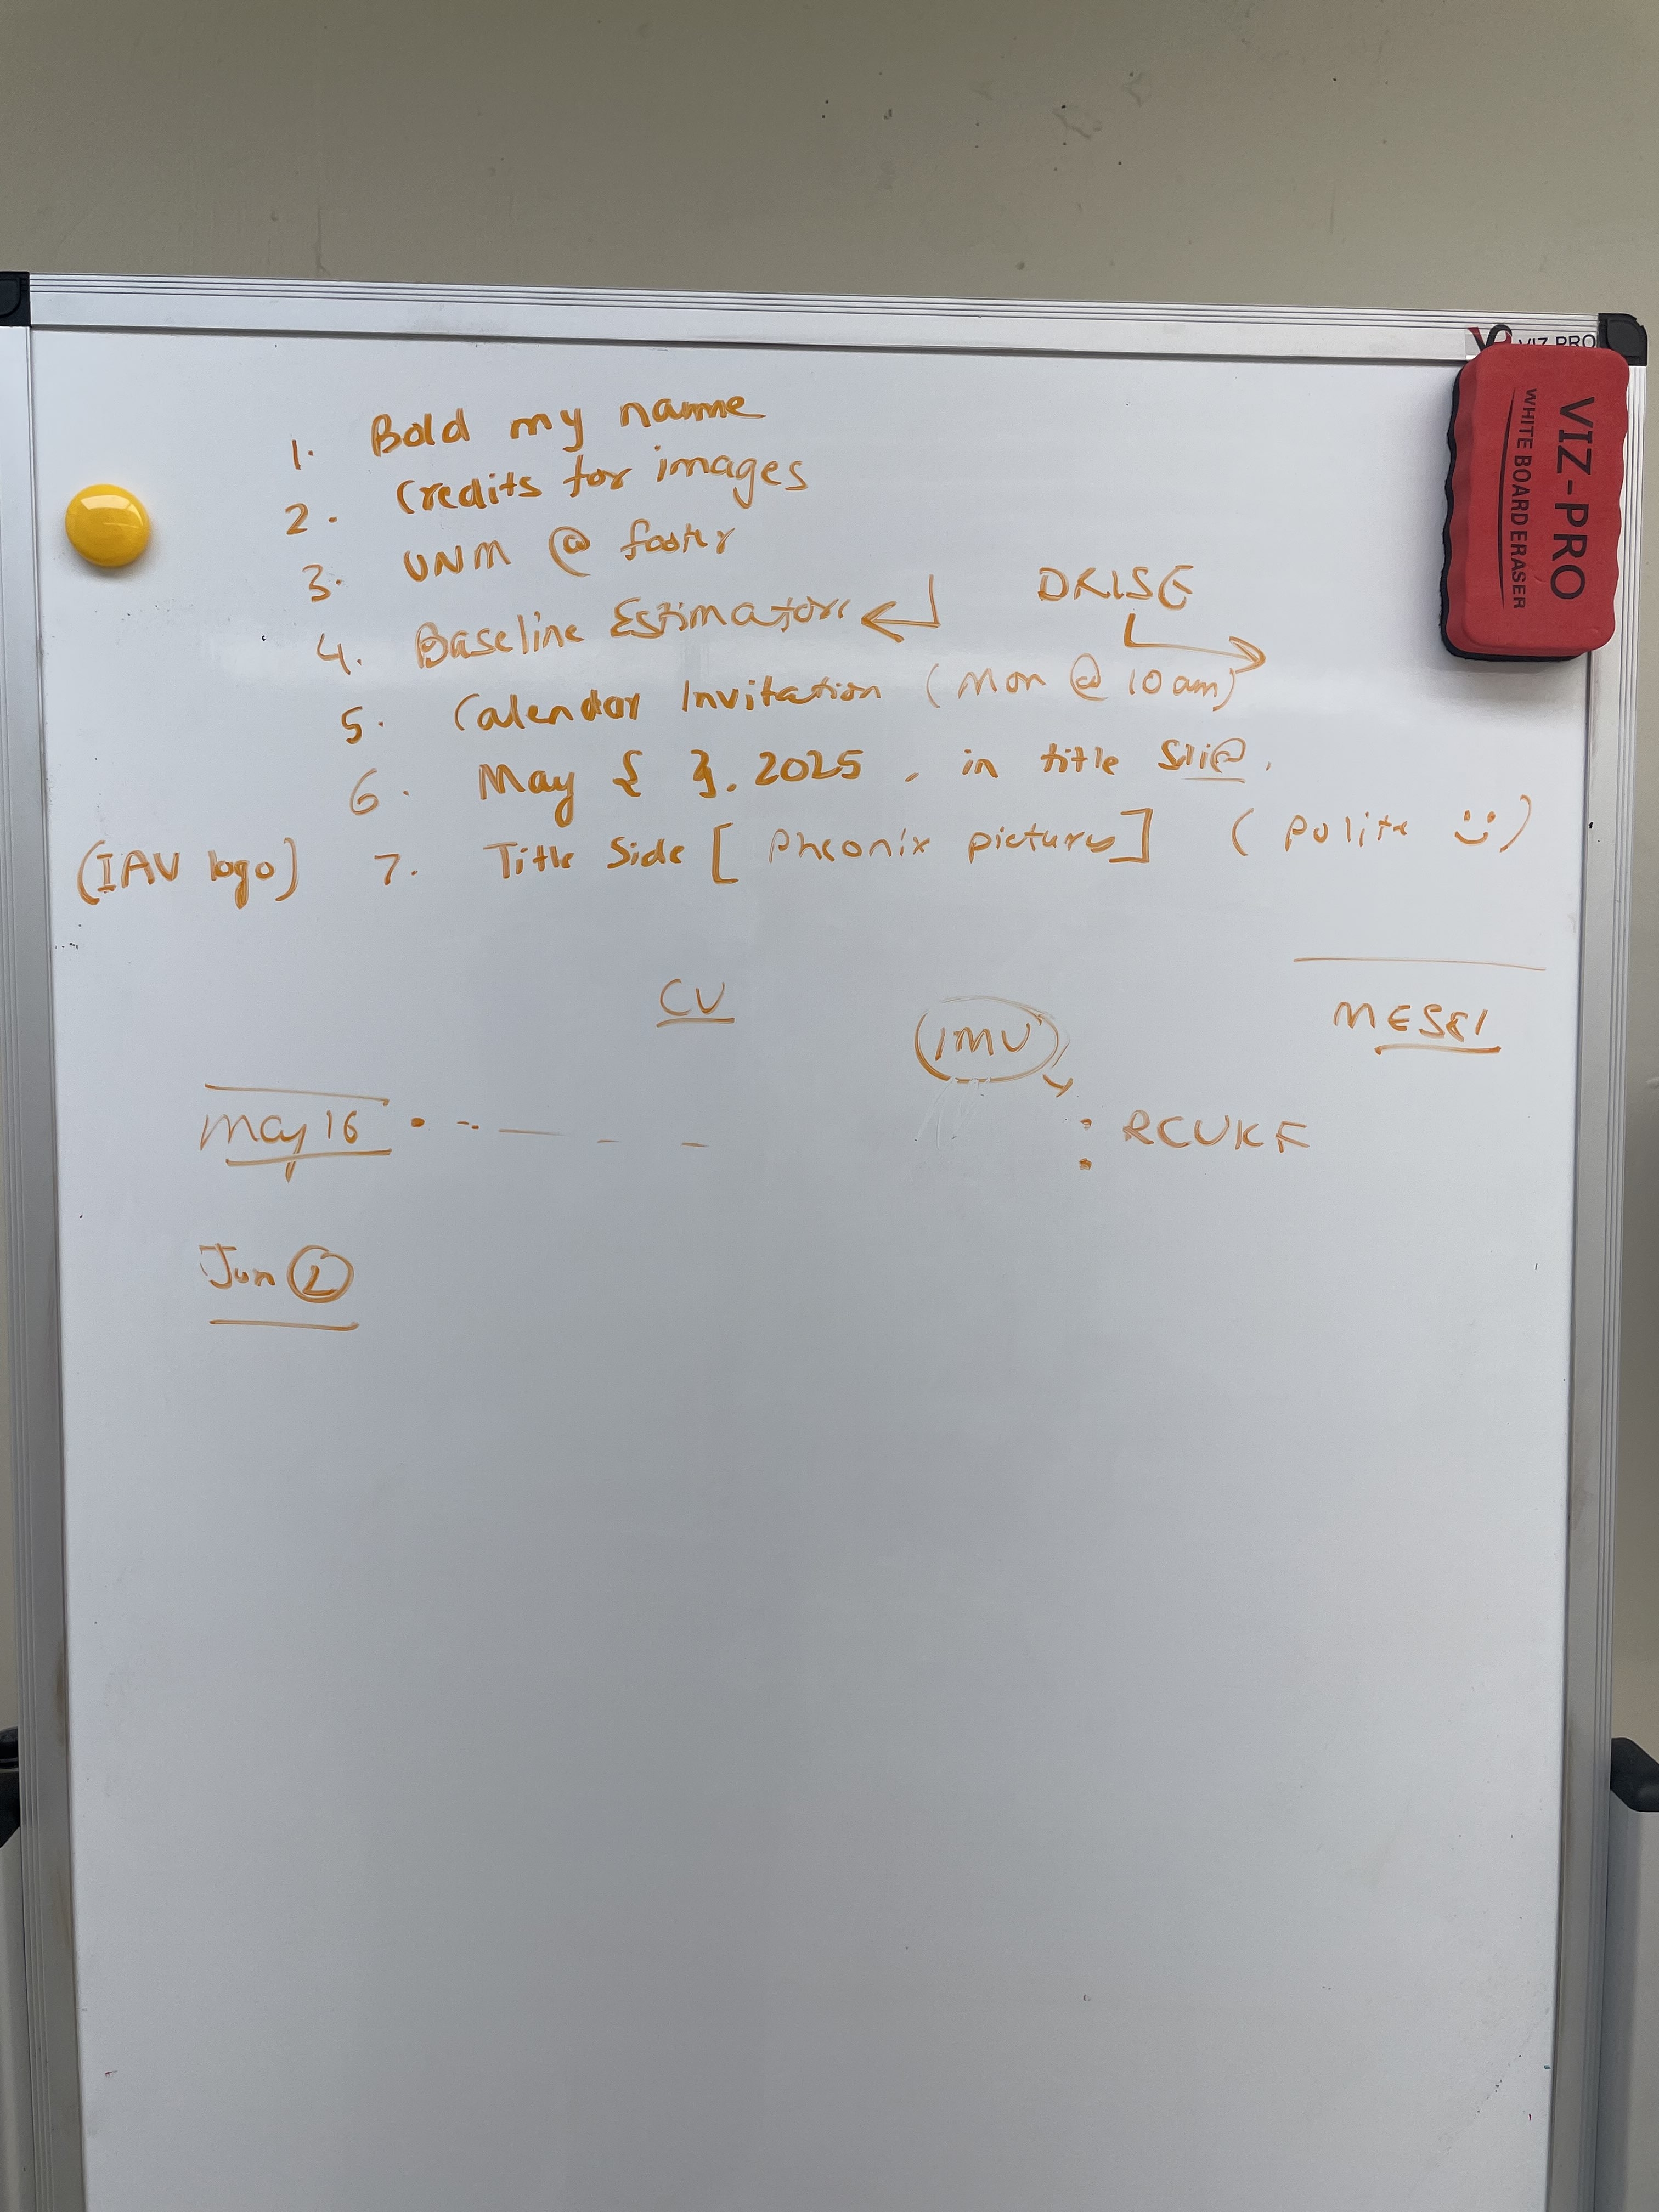 VIZ-PRO
VIZ-PRO
WHITE BOARD ERASER
1. Bold my name
2. Credits for images
3. UNM @ footer
4. Baseline Estimators
DRISE
5. Calendar Invitation (Mon @ 10 am)
6. May { }. 2025, in title
(IAV logo) 7. Title Side [Pheonix pictures] (polite :))
CV
IMU
May 16
RCUKF
Jun 2